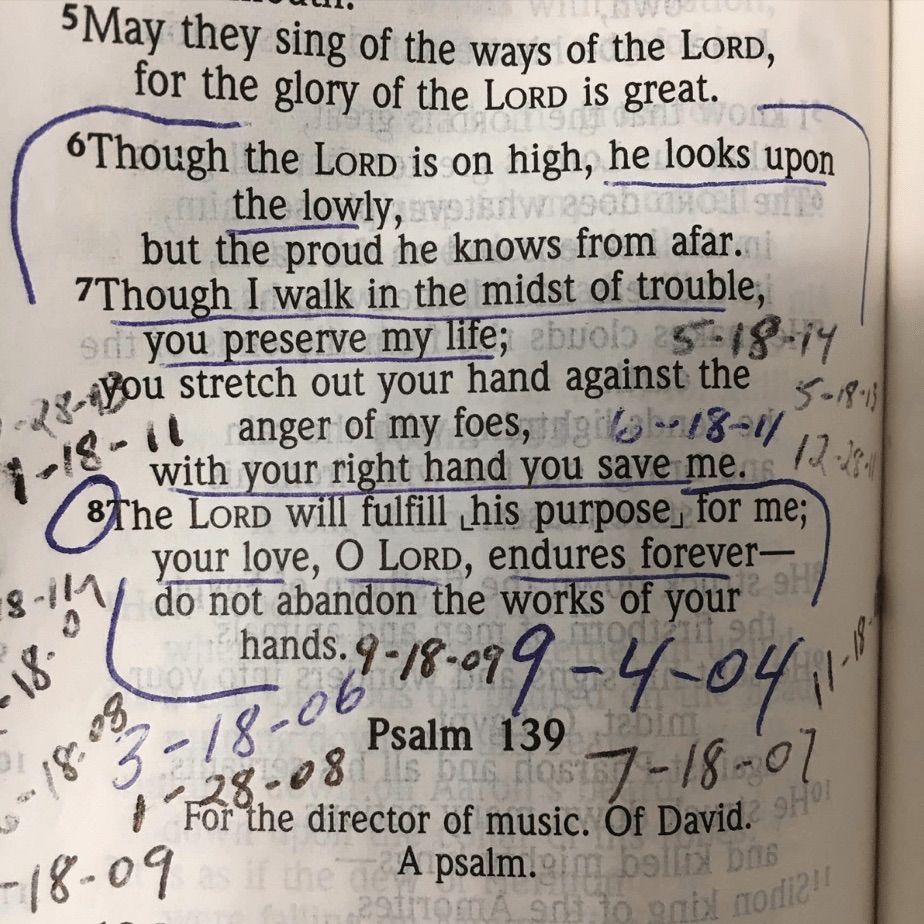 5May they sing of the ways of the LORD,
for the glory of the LORD is great.
6Though the LORD is on high, he looks upon
the lowly,
but the proud he knows from afar.
7Though I walk in the midst of trouble,
you preserve my life;
5-18-14
you stretch out your hand against the
5-18-13
anger of my foes,
6-18-11
1-18-11
with your right hand you save me.
8The LORD will fulfill ⌞his purpose⌟ for me;
your love, O LORD, endures forever—
do not abandon the works of your
hands.
9-18-09
9-4-04
3-18-06
Psalm 139
7-18-07
1-28-08
For the director of music. Of David.
A psalm.
-18-09